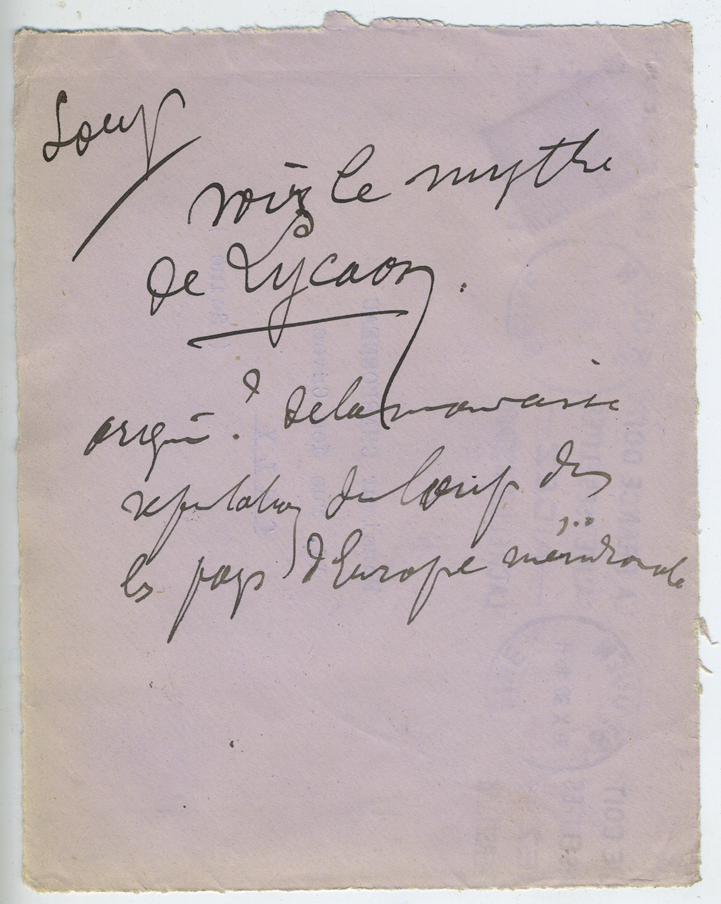 Loup
voir le mythe
de Lycaon.
origine ? de la mauvaise
réputation du loup dans
les pays d'Europe méridionale